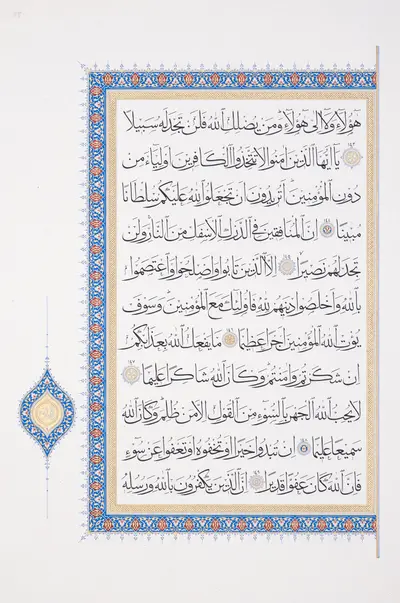 هَٰؤُلَاءِ وَلَا إِلَىٰ هَٰؤُلَاءِ وَمَن يُضْلِلِ اللَّهُ فَلَن تَجِدَ لَهُ سَبِيلًا
يَا أَيُّهَا الَّذِينَ آمَنُوا لَا تَتَّخِذُوا الْكَافِرِينَ أَوْلِيَاءَ مِن
دُونِ الْمُؤْمِنِينَ أَتُرِيدُونَ أَن تَجْعَلُوا لِلَّهِ عَلَيْكُمْ سُلْطَانًا
مُّبِينًا إِنَّ الْمُنَافِقِينَ فِي الدَّرْكِ الْأَسْفَلِ مِنَ النَّارِ وَلَن
تَجِدَ لَهُمْ نَصِيرًا إِلَّا الَّذِينَ تَابُوا وَأَصْلَحُوا وَاعْتَصَمُوا
بِاللَّهِ وَأَخْلَصُوا دِينَهُمْ لِلَّهِ فَأُولَٰئِكَ مَعَ الْمُؤْمِنِينَ وَسَوْفَ
يُؤْتِ اللَّهُ الْمُؤْمِنِينَ أَجْرًا عَظِيمًا مَّا يَفْعَلُ اللَّهُ بِعَذَابِكُمْ
إِن شَكَرْتُمْ وَآمَنتُمْ وَكَانَ اللَّهُ شَاكِرًا عَلِيمًا
لَّا يُحِبُّ اللَّهُ الْجَهْرَ بِالسُّوءِ مِنَ الْقَوْلِ إِلَّا مَن ظُلِمَ وَكَانَ اللَّهُ
سَمِيعًا عَلِيمًا إِن تُبْدُوا خَيْرًا أَوْ تُخْفُوهُ أَوْ تَعْفُوا عَن سُوءٍ
فَإِنَّ اللَّهَ كَانَ عَفُوًّا قَدِيرًا إِنَّ الَّذِينَ يَكْفُرُونَ بِاللَّهِ وَرُسُلِهِ